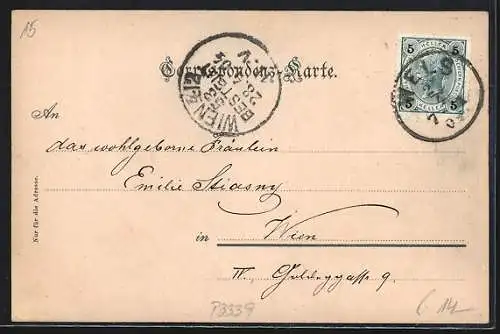 15
Correspondenz-Karte.
5 5
HELLER
HELLER
5 5
WELS
An
das wohlgeborne Fräulein
Emilie Stiasny
in Wien
IV. Goldeggasse 9.
Nur für die Adresse.
P3339
WIEN
BESTELLT